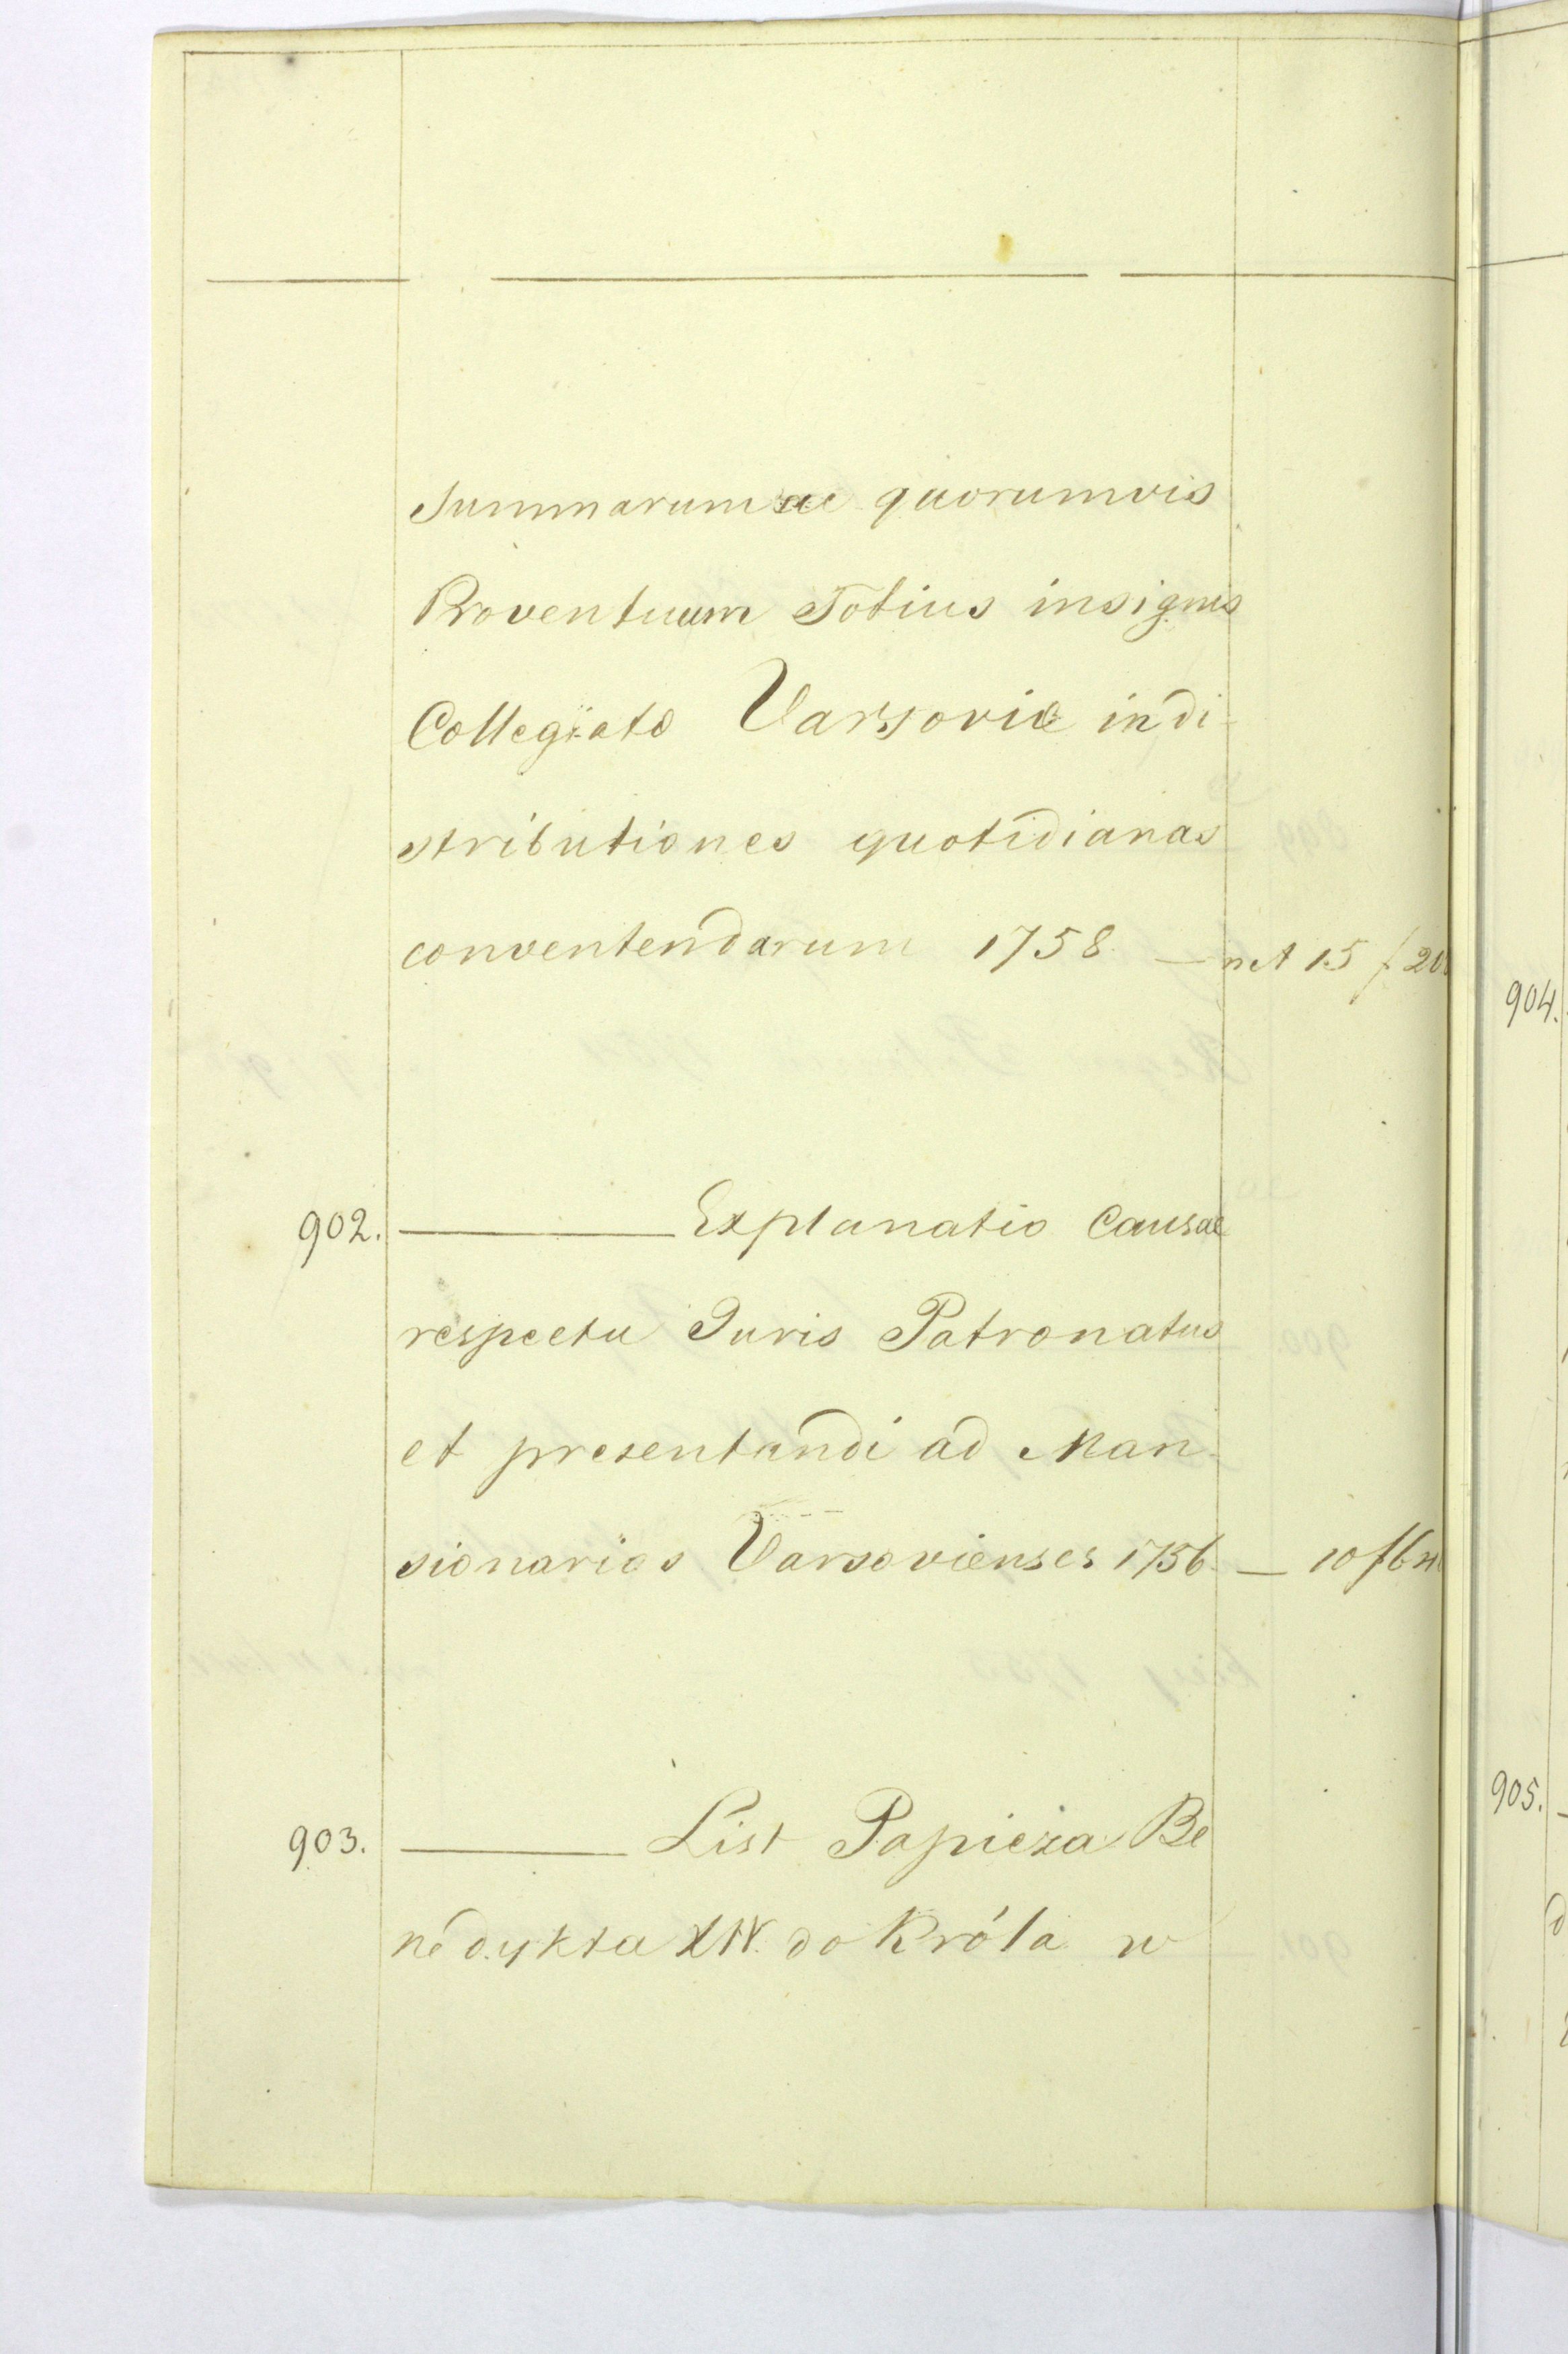 Summarum ac quorumvis
Proventuum Totius insignis
Collegiate Varsovie indi-
stributiones quotidianas
conventendarum 1758 — net 15 f 20
902. ——— Explanatio Causae
respectu Juris Patronatus
et presentandi ad Man-
sionarios Varsovienses 1756 — 10 f 6
903. ——— List Papieża Be
nedykta XIV. do Króla w
904.
905.